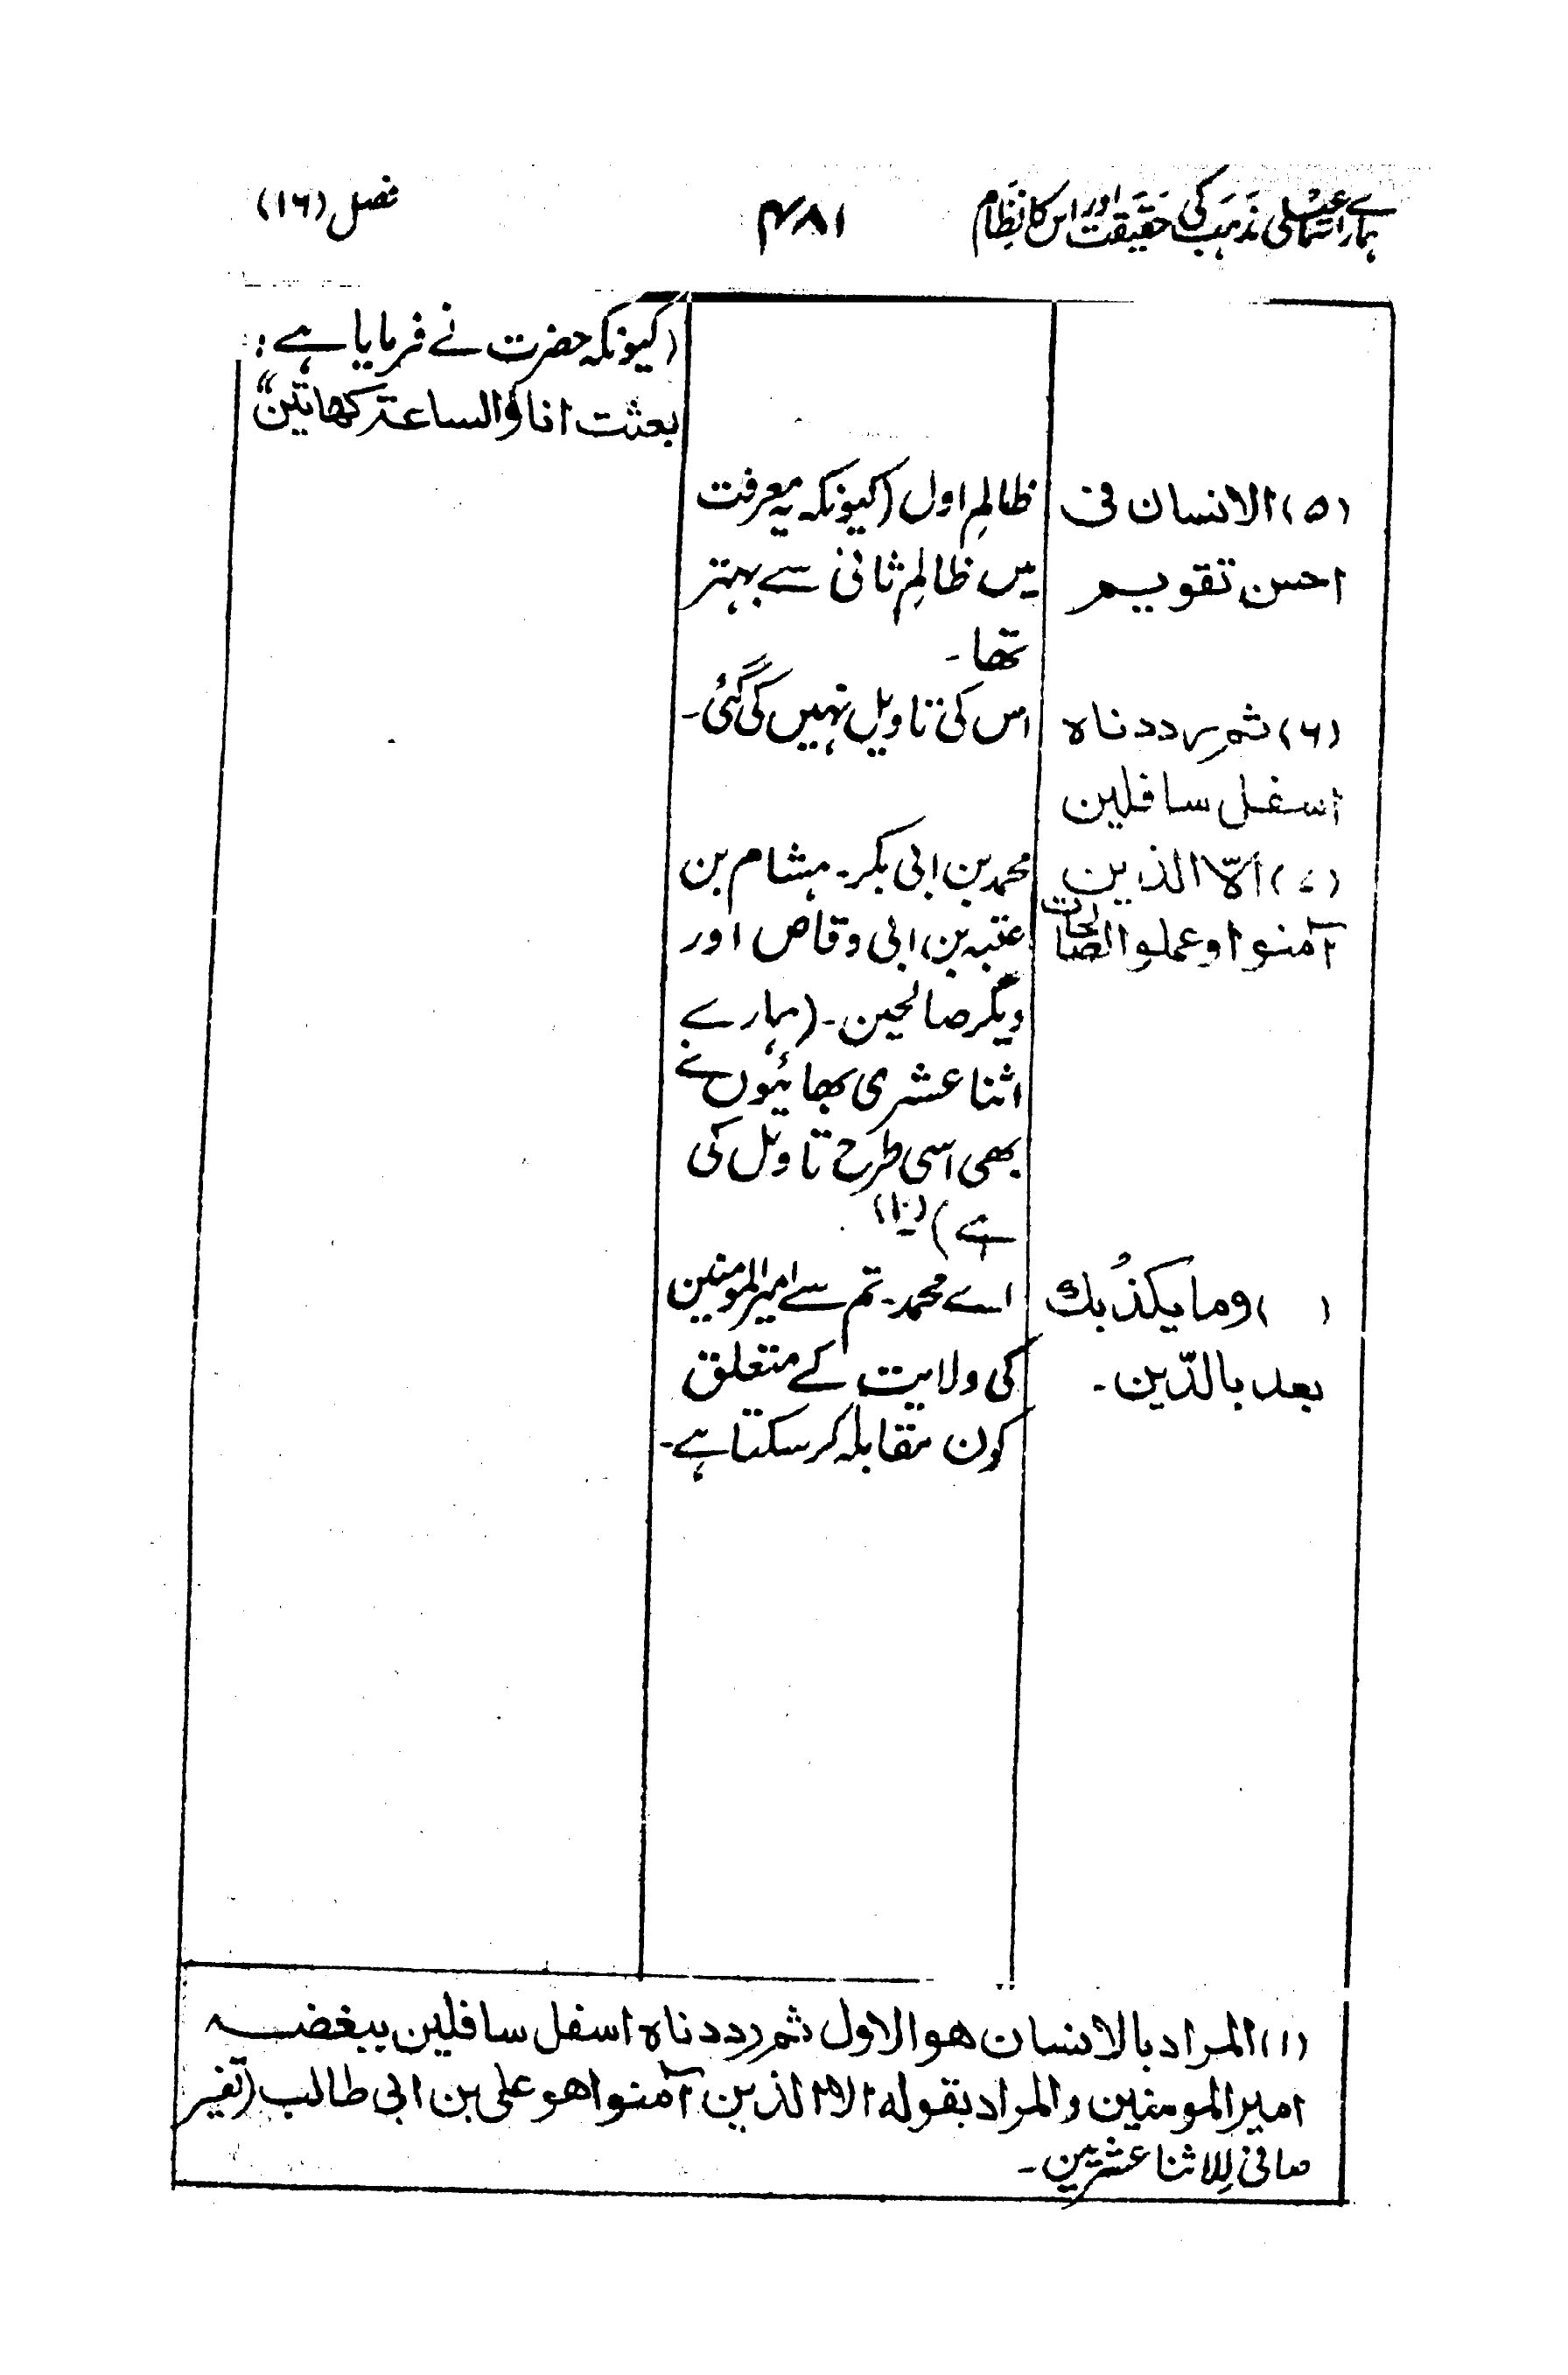 ہمارے اسماعیلی مذہب کی حقیقت اور اس کا نظام
۴۸۱
فصل (۱۶)
(کیونکہ حضرت نے فرمایا ہے:
بعثت انا والساعة کھاتین"
(۵) الانسان فی
احسن تقویم
ظالمِ اول (کیونکہ یہ معرفت
میں ظالمِ ثانی سے بہتر
تھا۔
(۶) ثم رددناہ
اسفل سافلین
اس کی تاویل نہیں کی گئی۔
(۷) الّا الذین
آمنوا وعملوا الصالحات
محمد بن ابی بکر۔ ہشام بن
عتبہ بن ابی وقاص اور
دیگر صالحین۔ (ہمارے
اثنا عشری بھائیوں نے
بھی اسی طرح تاویل کی
ہے) (۱)
( ) وما یکذُبك
بعد بالدّین۔
اے محمد۔ تم سے امیر المومنین
کی ولایت کے متعلق
کون مقابلہ کر سکتا ہے۔
(۱) المراد بالانسان ھو الاول ثم رددناہ اسفل سافلین ببغضہ
امیر المومنین والمراد بقولہ الا الذین آمنوا ھو علی بن ابی طالب (تفسیر
صافی للاثنا عشریین۔